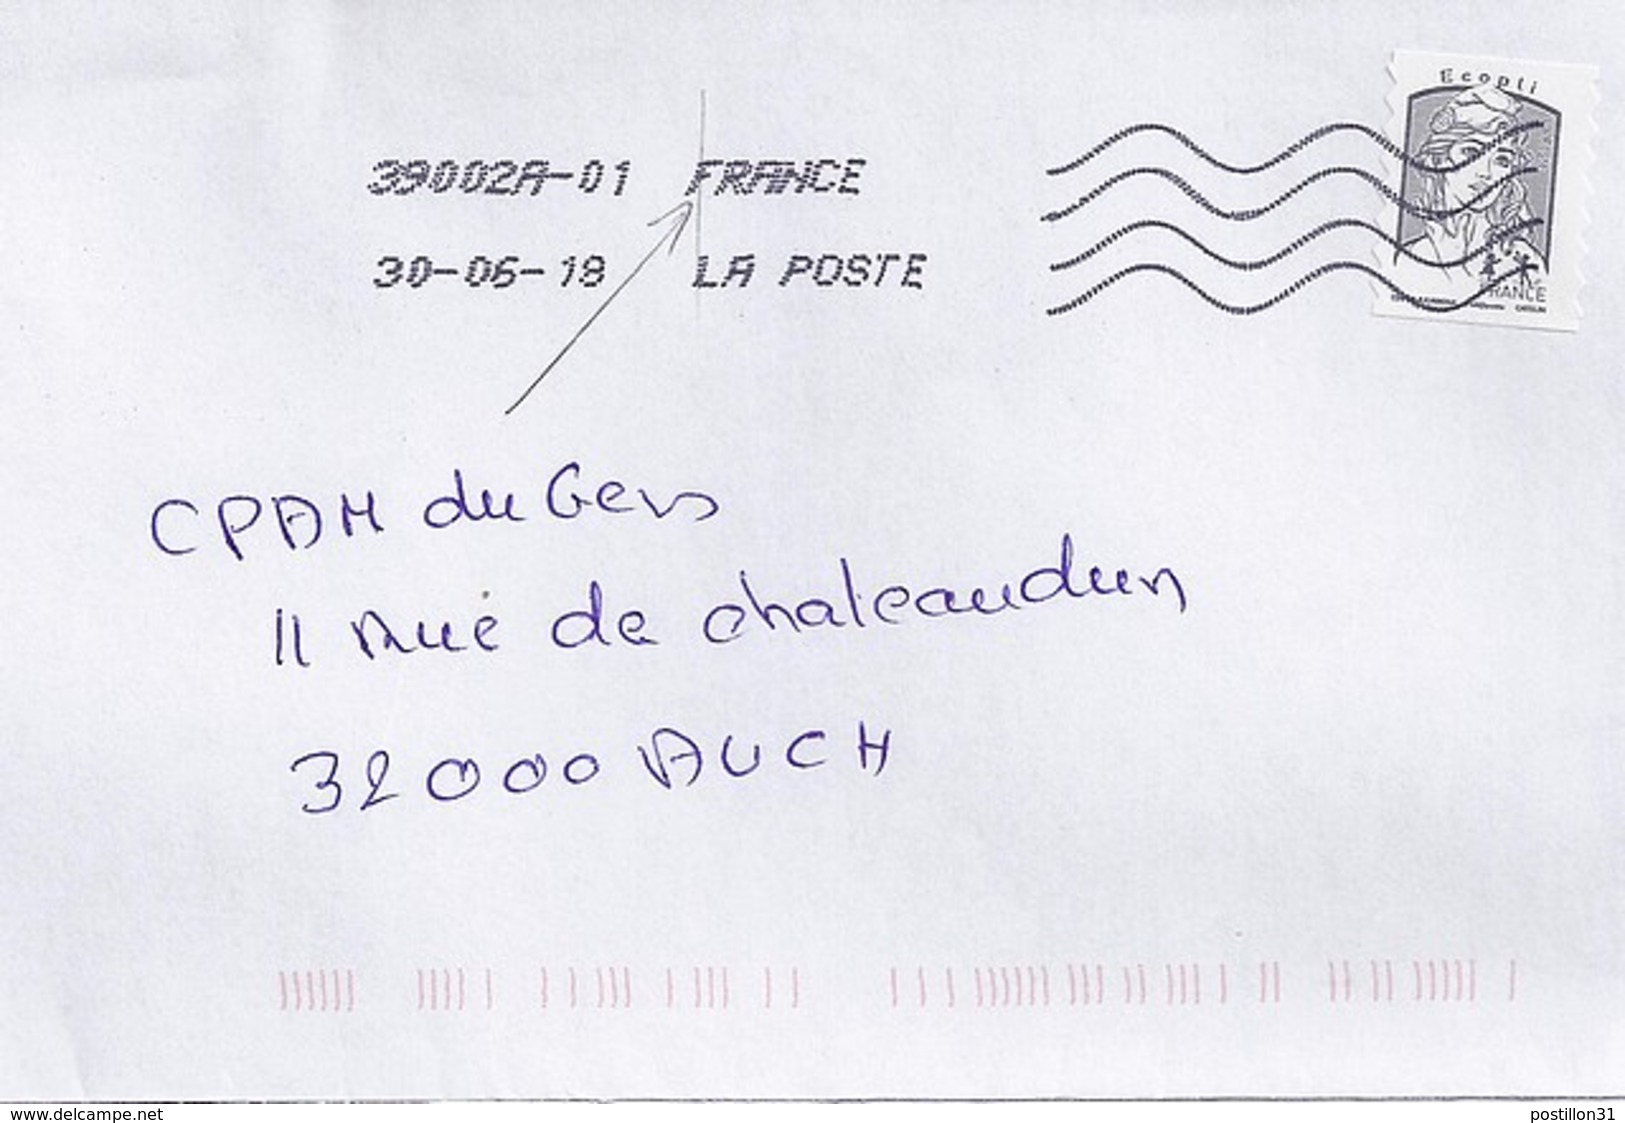 Ecopli
39002A-01 FRANCE
30-06-18 LA POSTE
FRANCE
CPAM du Gers
11 rue de chateaudun
32000 AUCH
www.delcampe.net
postillon31